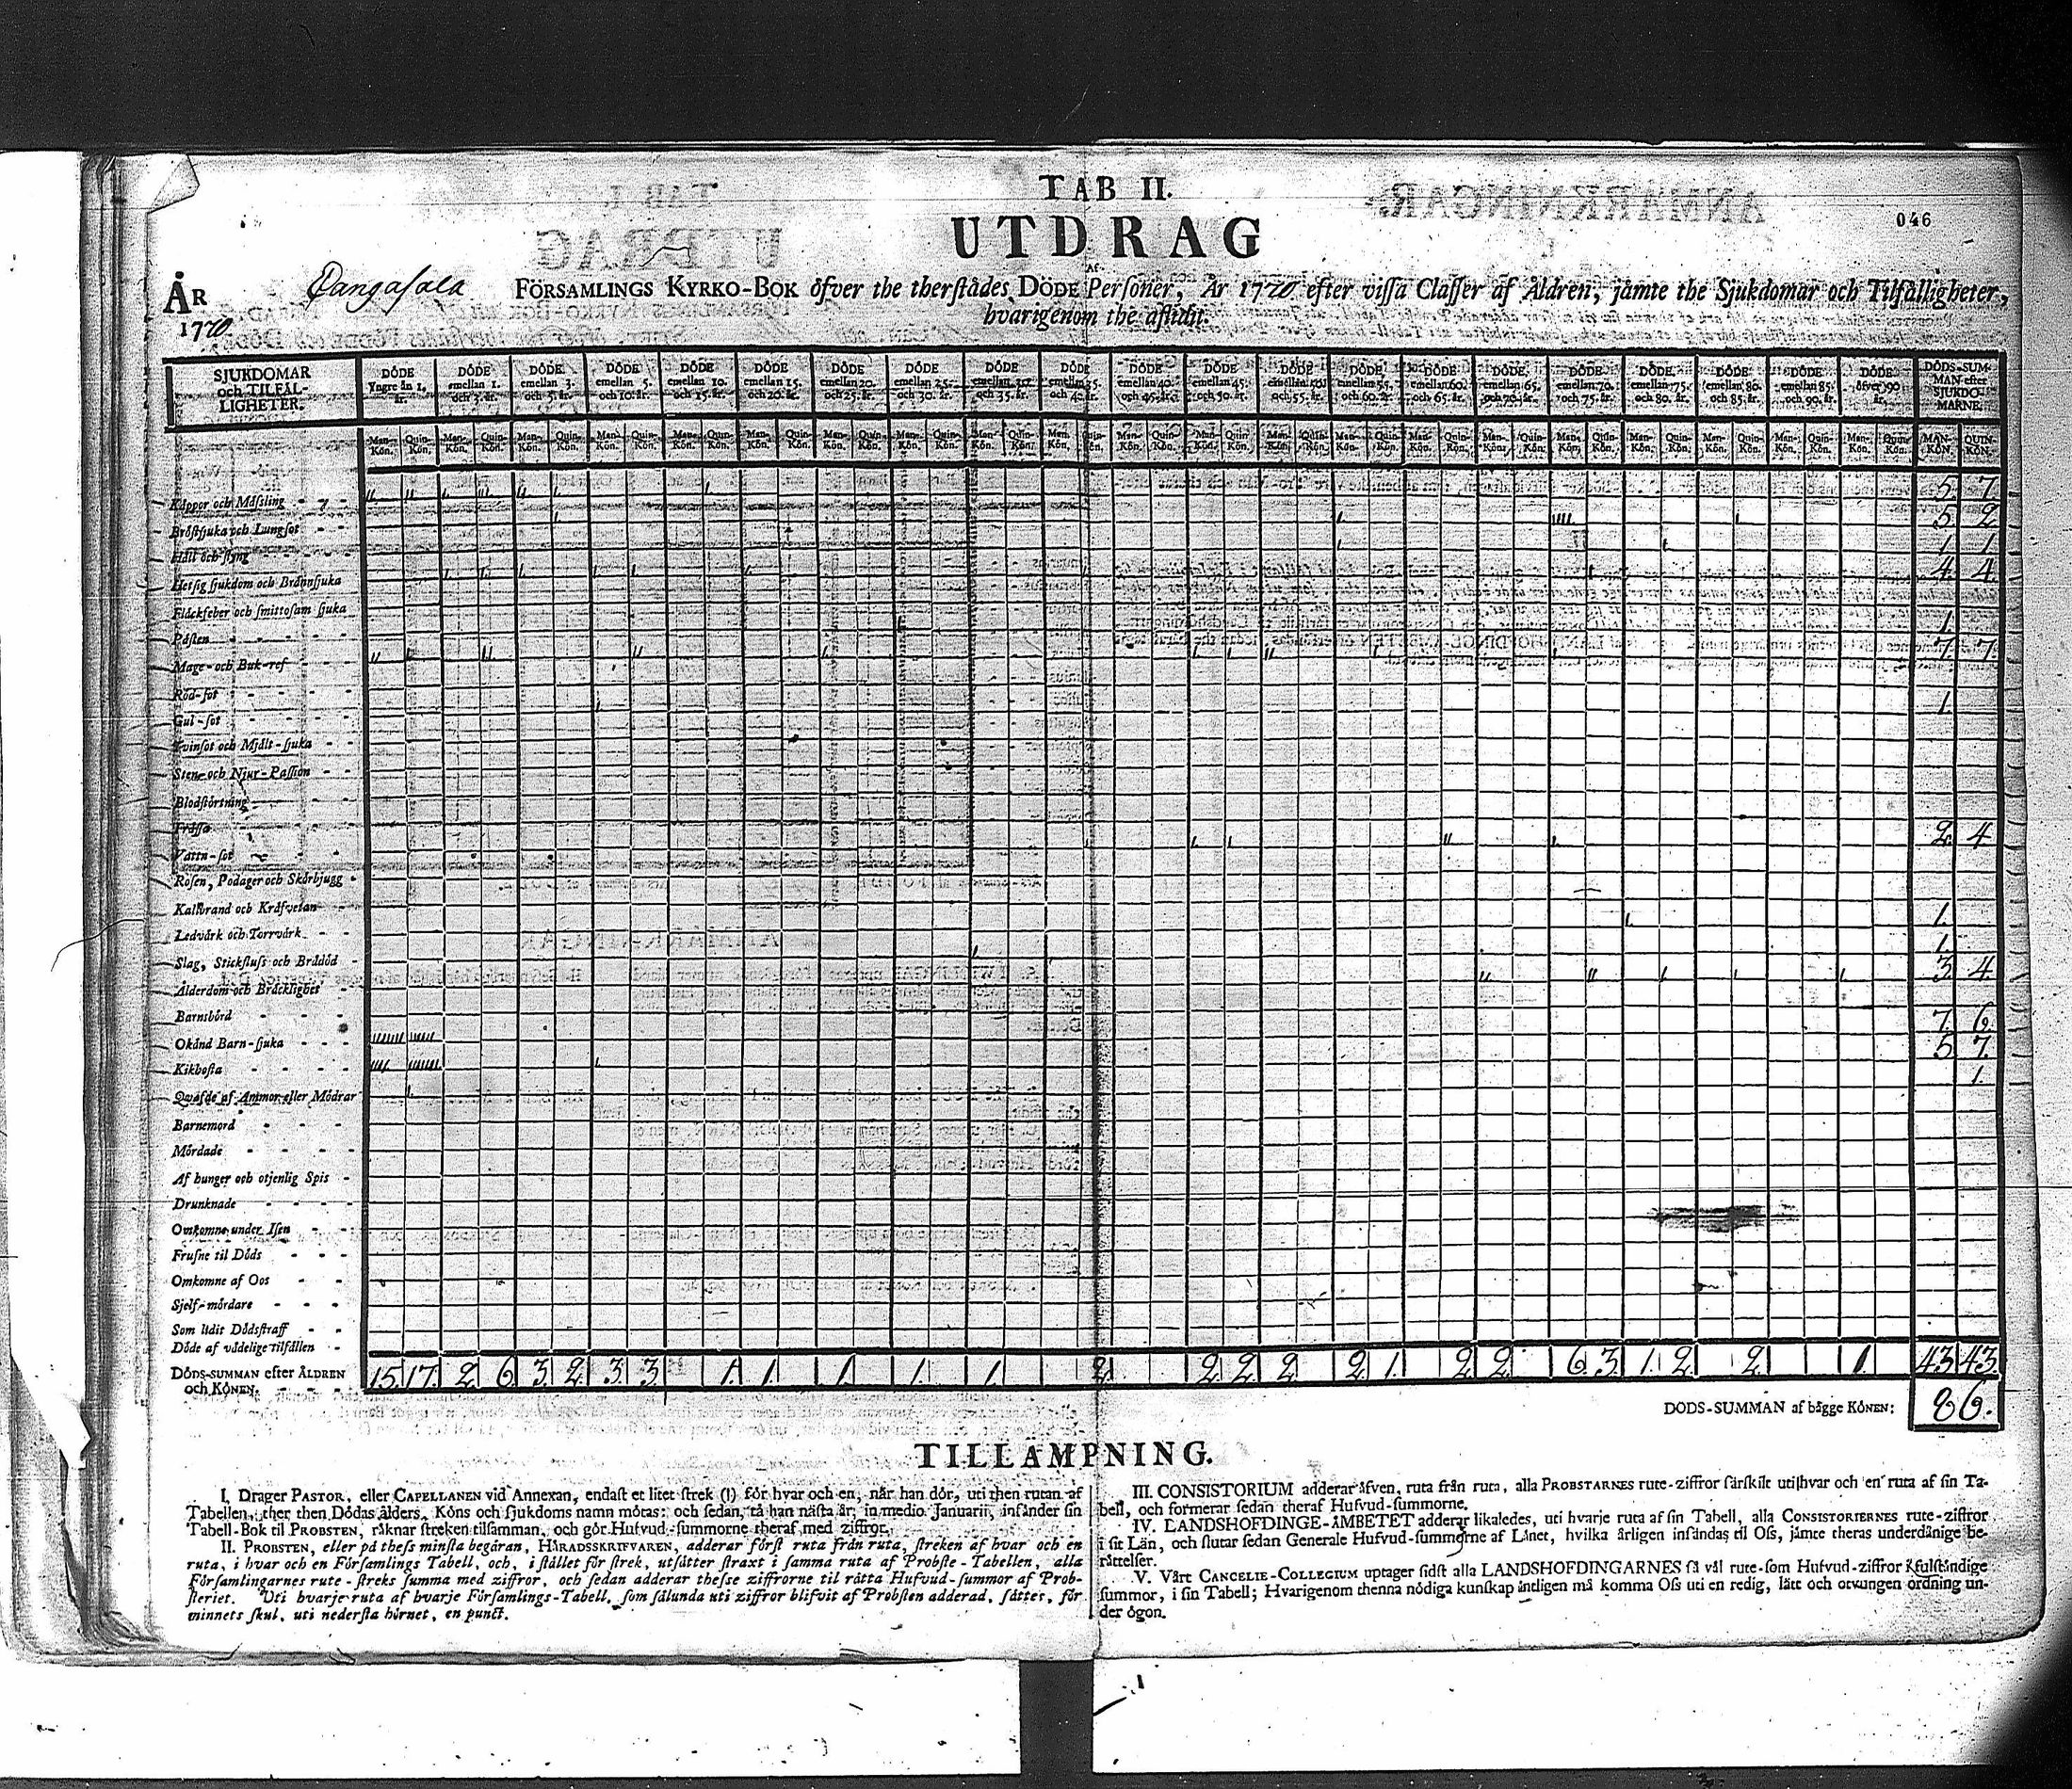 TAB II.
046
UTDRAG
AF
ÅR 1770 Pangasala FÖRSAMLINGS KYRKO-BOK öfver the therstådes DÖDE Personer, År 1770 efter vissa Classer af Åldren, jämte the Sjukdomar och Tilfälligheter,
hvarigenom the aflidit.
SJUKDOMAR och TILFÄL-LIGHETER.
DÖDE Yngre än 1. år.
DÖDE emellan 1. och 3. år.
DÖDE emellan 3. och 5. år.
DÖDE emellan 5. och 10. år.
DÖDE emellan 10. och 15. år.
DÖDE emellan 15. och 20. år.
DÖDE emellan 20. och 25. år.
DÖDE emellan 25. och 30. år.
DÖDE emellan 30. och 35. år.
DÖDE emellan 35. och 40. år.
DÖDE emellan 40. och 45. år.
DÖDE emellan 45. och 50. år.
DÖDE emellan 50. och 55. år.
DÖDE emellan 55. och 60. år.
DÖDE emellan 60. och 65. år.
DÖDE emellan 65. och 70. år.
DÖDE emellan 70. och 75. år.
DÖDE emellan 75. och 80. år.
DÖDE emellan 80. och 85. år.
DÖDE emellan 85. och 90. år.
DÖDE öfver 90 år.
DÖDS-SUMMAN efter SJUKDOMARNE.
Man-Kön. Quin-Kön.
MAN-KÖN. QUIN-KÖN.
Koppor och Mässling 5. 7.
Bröstsjuka och Lungsot 5. 2
Håll och styng 1. 1
Hetsig sjukdom och Brännsjuka 4. 4.
Fläckfeber och smittosam sjuka
Pästen 1.
Mage- och Buk-ref 7. 7
Röd-sot
Gul-sot 1.
Tvinsot och Mjält-sjuka
Sten- och Njur-Passion
Blodstörtning
Fråssa
Vattn-sot 2. 4
Rosen, Podager och Skörbjugg
Kallbrand och Kräfvetan
Ledvärk och Torrvärk 1.
Slag, Stickfluss och Brådöd 1.
Ålderdom och Bräcklighet 3. 4
Barnsbörd
Okänd Barn-sjuka 7. 6
Kikhosta 5 7.
Qväfde af Ammor eller Mödrar 1.
Barnemord
Mördade
Af hunger och otjenlig Spis
Drunknade
Omkomne under Isen
Frusne til Döds
Omkomne af Oos
Sjelf-mördare
Som lidit Dödsstraff
Döde af vådelige tilfällen
DÖDS-SUMMAN efter ÅLDREN och KÖNEN. 15. 17. 2. 6. 3. 2. 3. 3 1. 1. 1. 1. 1. 2. 2. 2. 2. 2. 1. 2. 2. 6. 3. 1. 2. 2. 1. 43. 43.
DÖDS-SUMMAN af bägge KÖNEN: 86.
TILLÄMPNING.
I. Drager PASTOR, eller CAPELLANEN vid Annexan, endast et litet strek (|) för hvar och en, när han dör, uti then rutan af
Tabellen, ther then Dödas ålders, Köns och sjukdoms namn mötas: och sedan, tå han nästa år, in medio Januarii, insänder sin
Tabell-Bok til PROBSTEN, räknar streken tilsamman, och gör Hufvud-summorne theraf med ziffror.
II. PROBSTEN, eller på thess minsta begäran, HÄRADSSKRIFVAREN, adderar först ruta från ruta, streken af hvar och en
ruta, i hvar och en Församlings Tabell, och, i stället för strek, utsätter straxt i samma ruta af Probste-Tabellen, alla
Församlingarnes rute-streks summa med ziffror, och sedan adderar thesse ziffrorne til rätta Hufvud-summor af Prob-
steriet. Uti hvarje ruta af hvarje Församlings-Tabell, som sålunda uti ziffror blifvit af Probsten adderad, sätter, för
minnets skul, uti nedersta hörnet, en punct.
III. CONSISTORIUM adderar äfven, ruta från ruta, alla PROBSTARNES rute-ziffror särskilt uti hvar och en ruta af sin Ta-
bell, och formerar sedan theraf Hufvud-summorne.
IV. LANDSHÖFDINGE-ÄMBETET adderar likaledes, uti hvarje ruta af sin Tabell, alla CONSISTORIERNES rute-ziffror
i sit Län, och slutar sedan Generale Hufvud-summorne af Länet, hvilka årligen insändas til Oss, jämte theras underdånige be-
rättelser.
V. Vårt CANCELIE-COLLEGIUM uptager sidst alla LANDSHÖFDINGARNES så väl rute-som Hufvud-ziffror i fulständige
summor, i sin Tabell; Hvarigenom thenna nödiga kunskap äntligen må komma Oss uti en redig, lätt och otvungen ordning un-
der ögon.